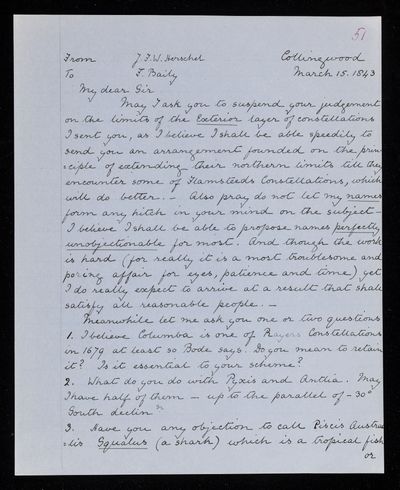 51
From J.F.W. Herschel Collingwood
To F. Baily March 15. 1843
My dear Sir
May I ask you to suspend your judgement
on the limits of the Exterior layer of constellations
I sent you, as I believe I shall be able speedily to
send you an arrangement founded on the prin
=ciple of extending their northern limits till they
encounter some of Flamsteeds Constellations, which
will do better. — Also pray do not let my names
form any hitch in your mind on the subject —
I believe I shall be able to propose names perfectly
unobjectionable for most. And though the work
is hard (for really it is a most troublesome and
poring affair for eyes, patience and time) yet
I do really expect to arrive at a result that shall
satisfy all reasonable people. —
Meanwhile let me ask you one or two questions
1. I believe Columba is one of Constellations
in 1679 at least so Bode says. Do you mean to retain
it? Is it essential to your scheme?
2. What do you do with Pyxis and Antlia. May
I have half of them — up to the parallel of -30°
South declinn
3. Have you any objection to call Piscis Austra
=lis Squalus (a shark) which is a tropical fish
or